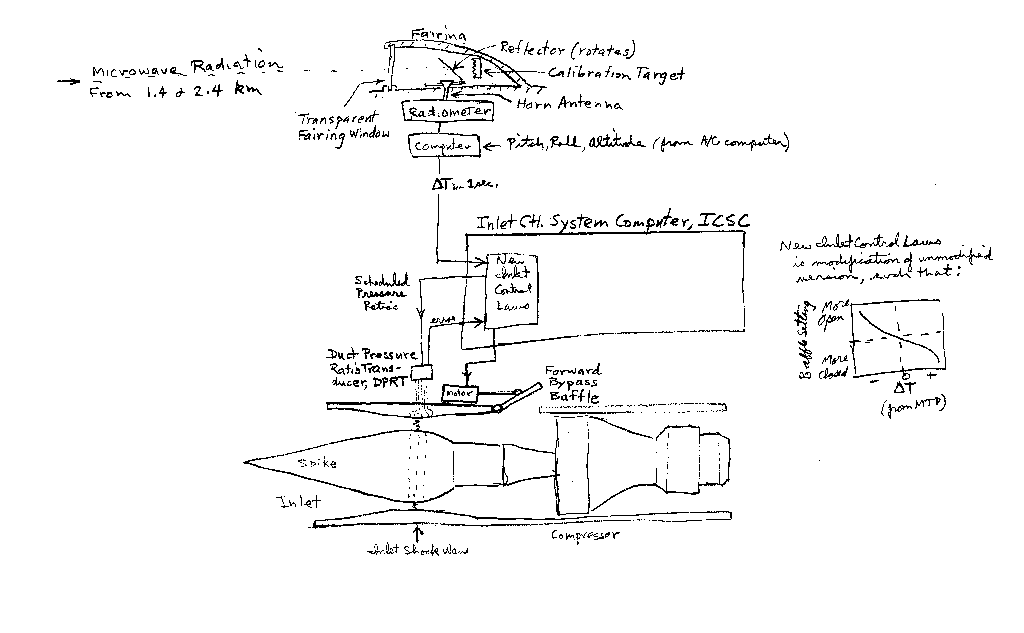 Fairing
Reflector (rotates)
Calibration Target
→ Microwave Radiation
From 1.4 & 2.4 km
Horn Antenna
Transparent
Fairing Window
Radiometer
Computer
Pitch, Roll, altitude (from A/C computer)
ΔT in 1 sec.
Inlet Ctl. System Computer, ICSC
New
Inlet
Control
Laws
Scheduled
Pressure
Ratio
error
New Inlet Control Laws
is modification of unmodified
version, such that:
Baffle Setting
More
Open
More
Closed
- 0 +
ΔT
(from MTP)
Duct Pressure
Ratio Trans-
ducer, DPRT
motor
Forward
Bypass
Baffle
Spike
Inlet
Compressor
Inlet Shock Wave